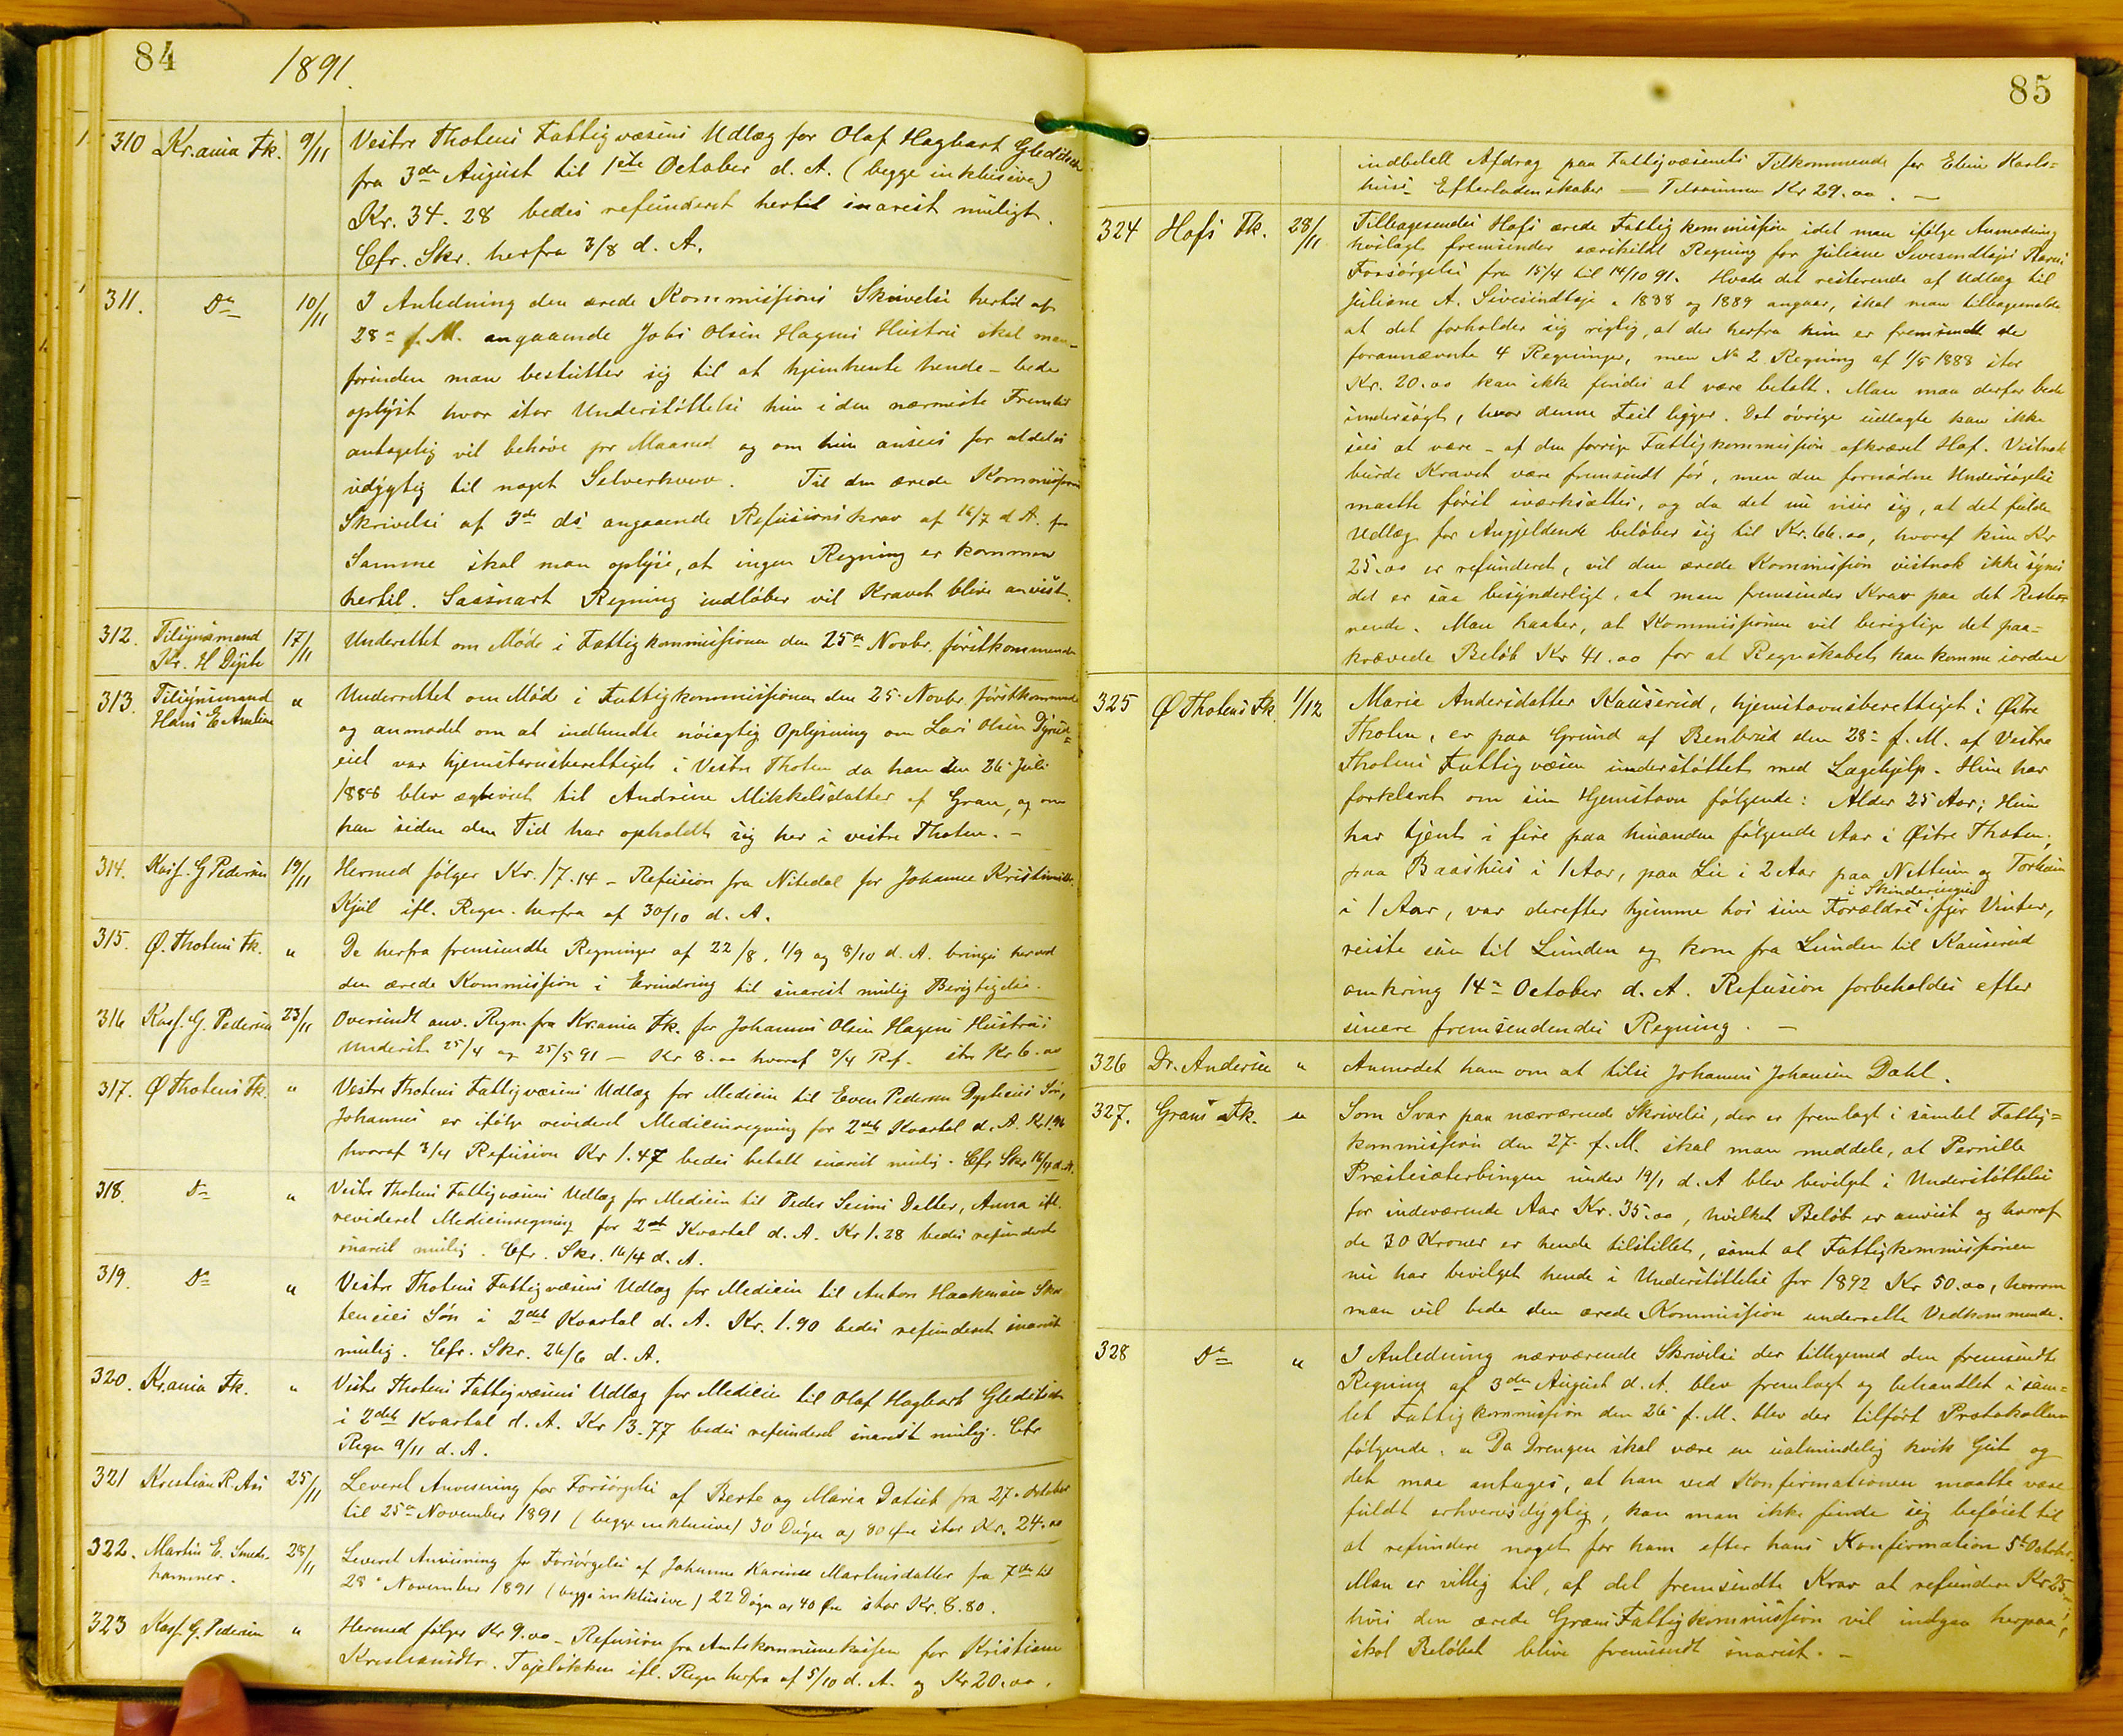 84
1891.
310 Kr.ania Fk. 9/11 Vestre Thotens Fattigvæsens Udlæg for Olaf Hagbart Gleditsch
fra 3die August til 1ste October d. A. (begge inklusive)
Kr. 34.28 bedes refunderet hertil snarest muligt.
Cfr. Skr. herfra 3/8 d. A.
311. Do 10/11 I Anledning den ærede Kommissions Skrivelse hertil af
28de f. M. angaaende Johs Olsen Hagens Hustru skal man –
forinden man beslutter sig til at hjemhente hende – bede
oplyst hvor stor Understøttelse hun i den nærmeste Fremtid
antagelig vil behøve pr Maaned og om hun ansees for aldeles
udygtig til noget Selverhverv. Til den ærede Kommissions
Skrivelse af 3de ds angaaende Refusionskrav af 16/7 d A. for
Samme skal man oplyse, at ingen Regning er kommen
hertil. Saasnart Regning indløber vil Kravet blive anvist.
312. Tilsynsmand Kr. H Dyste 17/11 Underettet om Møde i Fattigkommissionen den 25de Novbr. førstkommende
313. Tilsynsmand Hans E " Underrettet om Møde i Fattigkommissionen den 25 Novbr. førstkommende
og anmodet om at indhendte nøiagtig Oplysning om Lars Olsen
eiet var hjemstavnsberettiget i Vestre Thoten da han den 26 Juli
1888 blev ægteviet til Andrine Mikkelsdatter af Gran, og om
han siden den Tid har opholdt sig her i vestre Thoten. –
314. Kasf. G Pedersen 19/11 Hermed følger Kr. 17.14 – Refusion fra Nitedal for Johanne
Kjül ifl. Regn. herfra af 30/10 d. A.
315. Ø. Thotens Fk. " De herfra fremsendte Regninger af 22/8, 1/9 og 8/10 d. A. bringes herved
den ærede Kommission i Erindring til snarest mulig Berigtigelse.
316 Kasf. G. Pedersen 23/11 Oversendt anv. Regn. fra Kr.ania Fk. for Johannes Olsen Hagens Hustrus
Underst. 25/4 og 25/5 91 – Kr 8.00 hvoraf 3/4 Ref. stor Kr 6.00
317. Ø Thotens Fk. " Vestre Thotens Fattigvæsens Udlæg for Medicin til Even Pedersen Dysteeies Søn,
Johannes er ifølge revideret Medicinregning for 2det Kvartal d. A. Kr 1.96
hvoraf 3/4 Refusion Kr 1.47 bedes betalt snarest mulig. Cfr Skr 16/4 d. A.
318. Do " Vestre Thotens Fattigvæsens Udlæg for Medicin til Peder Datter, Anna ifl.
revideret Medicinregning for 2det Kvartal d. A. Kr 1.28 bedes refunderet
snarest mulig. Cfr. Skr. 16/4 d. A.
319. Do " Vestre Thotens Fattigvæsens Udlæg for Medicin til Anton Haakensen
Søn i 2det Kvartal d. A. Kr. 1.90 bedes refunderet snarest
mulig. Cfr. Skr. 26/6 d. A.
320. Kr.ania Fk. " Vestre Thotens Fattigvæsens Udlæg for Medicin til Olaf Hagbart Gleditsch
i 2det Kvartal d. A. Kr 13.77 bedes refunderet snarest mulig. Cfr
Regn 9/11 d. A.
321 Kristian R. 25/11 Leveret Anvisning for Forsørgelse af Berte og Maria fra 27. October
til 25de November 1891 (begge inklusive) 30 Døgn a 80 Øre stor Kr. 24.00
322. Martin E. Smedshammer. 28/11 Leveret Anvisning for Forsørgelse af Johanne Karine Martinsdatter fra 7de til
28de November 1891 (begge inklusive) 22 Døgn a 40 Øre stor Kr. 8.80.
323 Kasf. G. Pedersen " Hermed følger Kr 9.00 – Refusion fra Amtskommunekassen for Kristiane
Kristiansdtr. Tajeløkken ifl. Regn herfra af 5/10 d. A. og Kr 20.00.
85
indbetalt Afdrag paa Fattigvæsenets Tilkommende for Eline Karls=
hus's Efterladenskaber — Tilsammen Kr 29.00. –
324 Hofs Fk. 28/11 Tilbagesendes Hofs ærede Fattigkommission idet man ifølge Anmodning
hoslagt fremsender særskildt Regning for Juliane
Forsørgelse fra 15/4 til 14/10 91. Hvade det resterende af Udlæg til
Juliane A. i 1888 og 1889 angaar, skal man tilbagemelde
at det forholder sig rigtig, at der herfra kun er fremsendt de
forannævnte 4 Regninger, men No 2 Regning af 1/5 1888 stor
Kr. 20.00 kan ikke findes at være betalt. Man maa derfor bede
undersøgt, hvor denne Feil ligger. Det øvrige udlagte kan ikke
sees at være – af den forrige Fattigkommission – afkrævet Hof. Vistnok
burde Kravet være fremsendt før, men den fornødne Undersøgelse
maatte først iværksættes, og da det nu viser sig, at det fulde
Udlæg for Angjeldende beløber sig til Kr. 66.00, hvoraf kun Kr
25.00 er refunderet, vil den ærede Kommission vistnok ikke synes
det er saa besynderligt, at man fremsender Krav paa det Reste=
rende. Man haaber, at Kommissionen vil berigtige det paa=
krævede Beløb Kr 41.00 for at Regnskabet kan komme iorden
325 Ø Thotens Fk. 1/12 Marie Andersdatter Kauserud, hjemstavnsberettiget i Østre
Thoten, er paa Grund af Benbrud den 28de f. M. af Vestre
Thotens Fattigvæsen understøttet med Lægehjelp. Hun har
forklaret om sin Hjemstavn følgende: Alder 25 Aar; Hun
har tjent i fire paa hinanden følgende Aar i Østre Thoten;
paa Baashus i 1 Aar, paa Lie i 2 Aar paa Nettum og
i Skinderengen
i 1 Aar, var derefter hjemme hos sine Forældre ifjor Vinter,
reiste saa til Lunden og kom fra Lunden til Kauserud
omkring 14de October d. A. Refusion forbeholdes efter
senere fremsendendes Regning. –
326 Dr. Andersen " Anmodet ham om at tilse Johannes Johansen Dahl.
327. Grans Fk. " Som Svar paa nærværende Skrivelse, der er fremlagt i samlet Fattig=
kommission den 27. f. M. skal man meddele, at Pernille
Præstesæterbingen under 19/1 d. A blev bevilget i Understøttelse
for indeværende Aar Kr. 35.00, hvilket Beløb er anvist og hvoraf
de 30 Kroner er hende tilstillet, samt at Fattigkommissionen
nu har bevilget hende i Understøttelse for 1892 Kr 50.00, hvorom
man vil bede den ærede Kommission underrette Vedkommende.
328 Do " I Anledning nærværende Skrivelse der tilligemed den fremsendte
Regning af 3die August d. A. blev fremlagt og behandlet i sam=
let Fattigkommission den 26 f. M. blev der tilført Protokollen
følgende: " Da Drengen skal være en ualmindelig kvik Gut og
det maa antages, at han ved Konfirmationen maatte være
fuldt erhvervsdygtig, kan man ikke finde sig beføiet til
at refundere noget for ham efter hans Konfirmation 5te October.
Man er villig til, af det fremsendte Krav at refundere Kr 25
hvis den ærede Grans Fattigkommission vil indgaa herpaa,
skal Beløbet blive fremsendt snarest. –